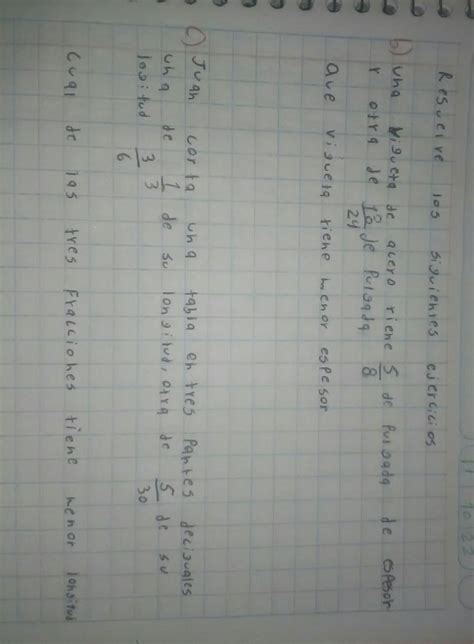 11 10 23
Resuelve los siguientes ejercicios
b) una vigueta de acero tiene 5/8 de pulgada de espesor
y otra de 10/24 de pulgada
que vigueta tiene menor espesor
c) Juan corta una tabla en tres partes decisuales
una de 1/3 de su longitud, otra de 5/30 de su
longitud 3/6
cual de las tres fracciones tiene menor longitud